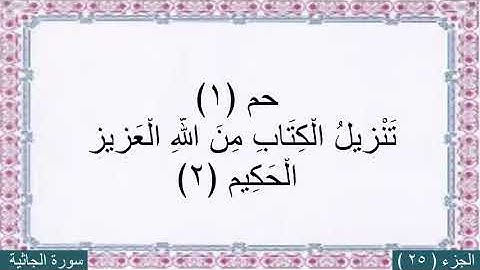 حم (١)
تَنْزِيلُ الْكِتَابِ مِنَ اللَّهِ الْعَزِيزِ
الْحَكِيمِ (٢)
الجزء ( ٢٥ )
سورة الجاثية